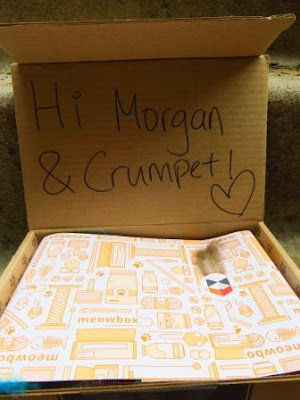 Hi Morgan
& Crumpet! ♡
meowbox
meowbox
meowbo